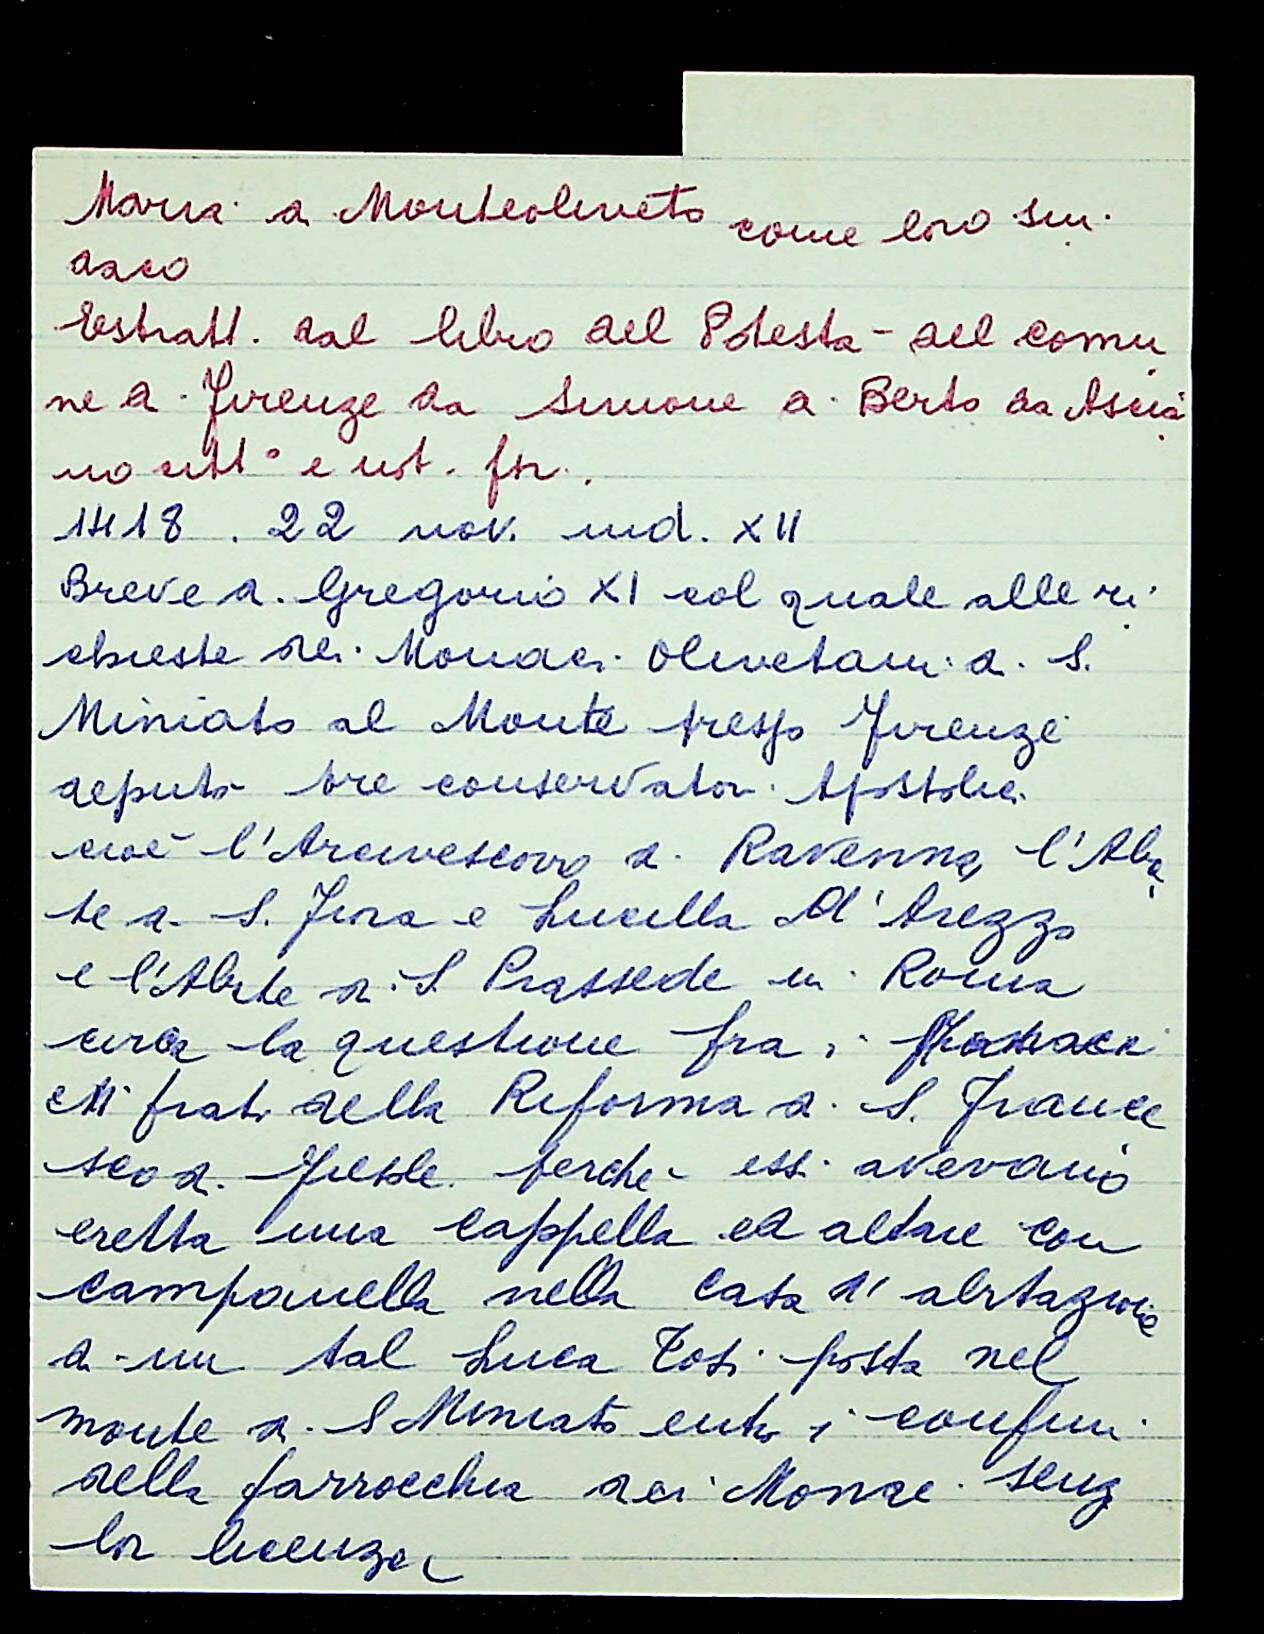 Maria a Monteoliveto come loro sin
daco
Estratt. dal libro del Potestà del comu
ne di Firenze da Simone di Berto da Ascia
no citt° e not. fior.
1418. 22 nov. ind. XII
Breve di Gregorio XI col quale alle ri
chieste dei Monaci Olivetani di S.
Miniato al Monte presso Firenze
deputò tre conservatori Apostolici
cioè l'Arcivescovo di Ravenna, l'Aba
te di S. Fiora e Lucilla d'Arezzo
e l'Abate di S. Prassede in Roma
circa la questione fra i
frati della Riforma di S. France
sco di Fiesole perché essi avevano
eretta una cappella ed altare con
campanella nella casa d'abitazione
di un tal Luca Tosi posta nel
monte di S Miniato entro i confini
della parrocchia dei Monac. senz
lor licenza